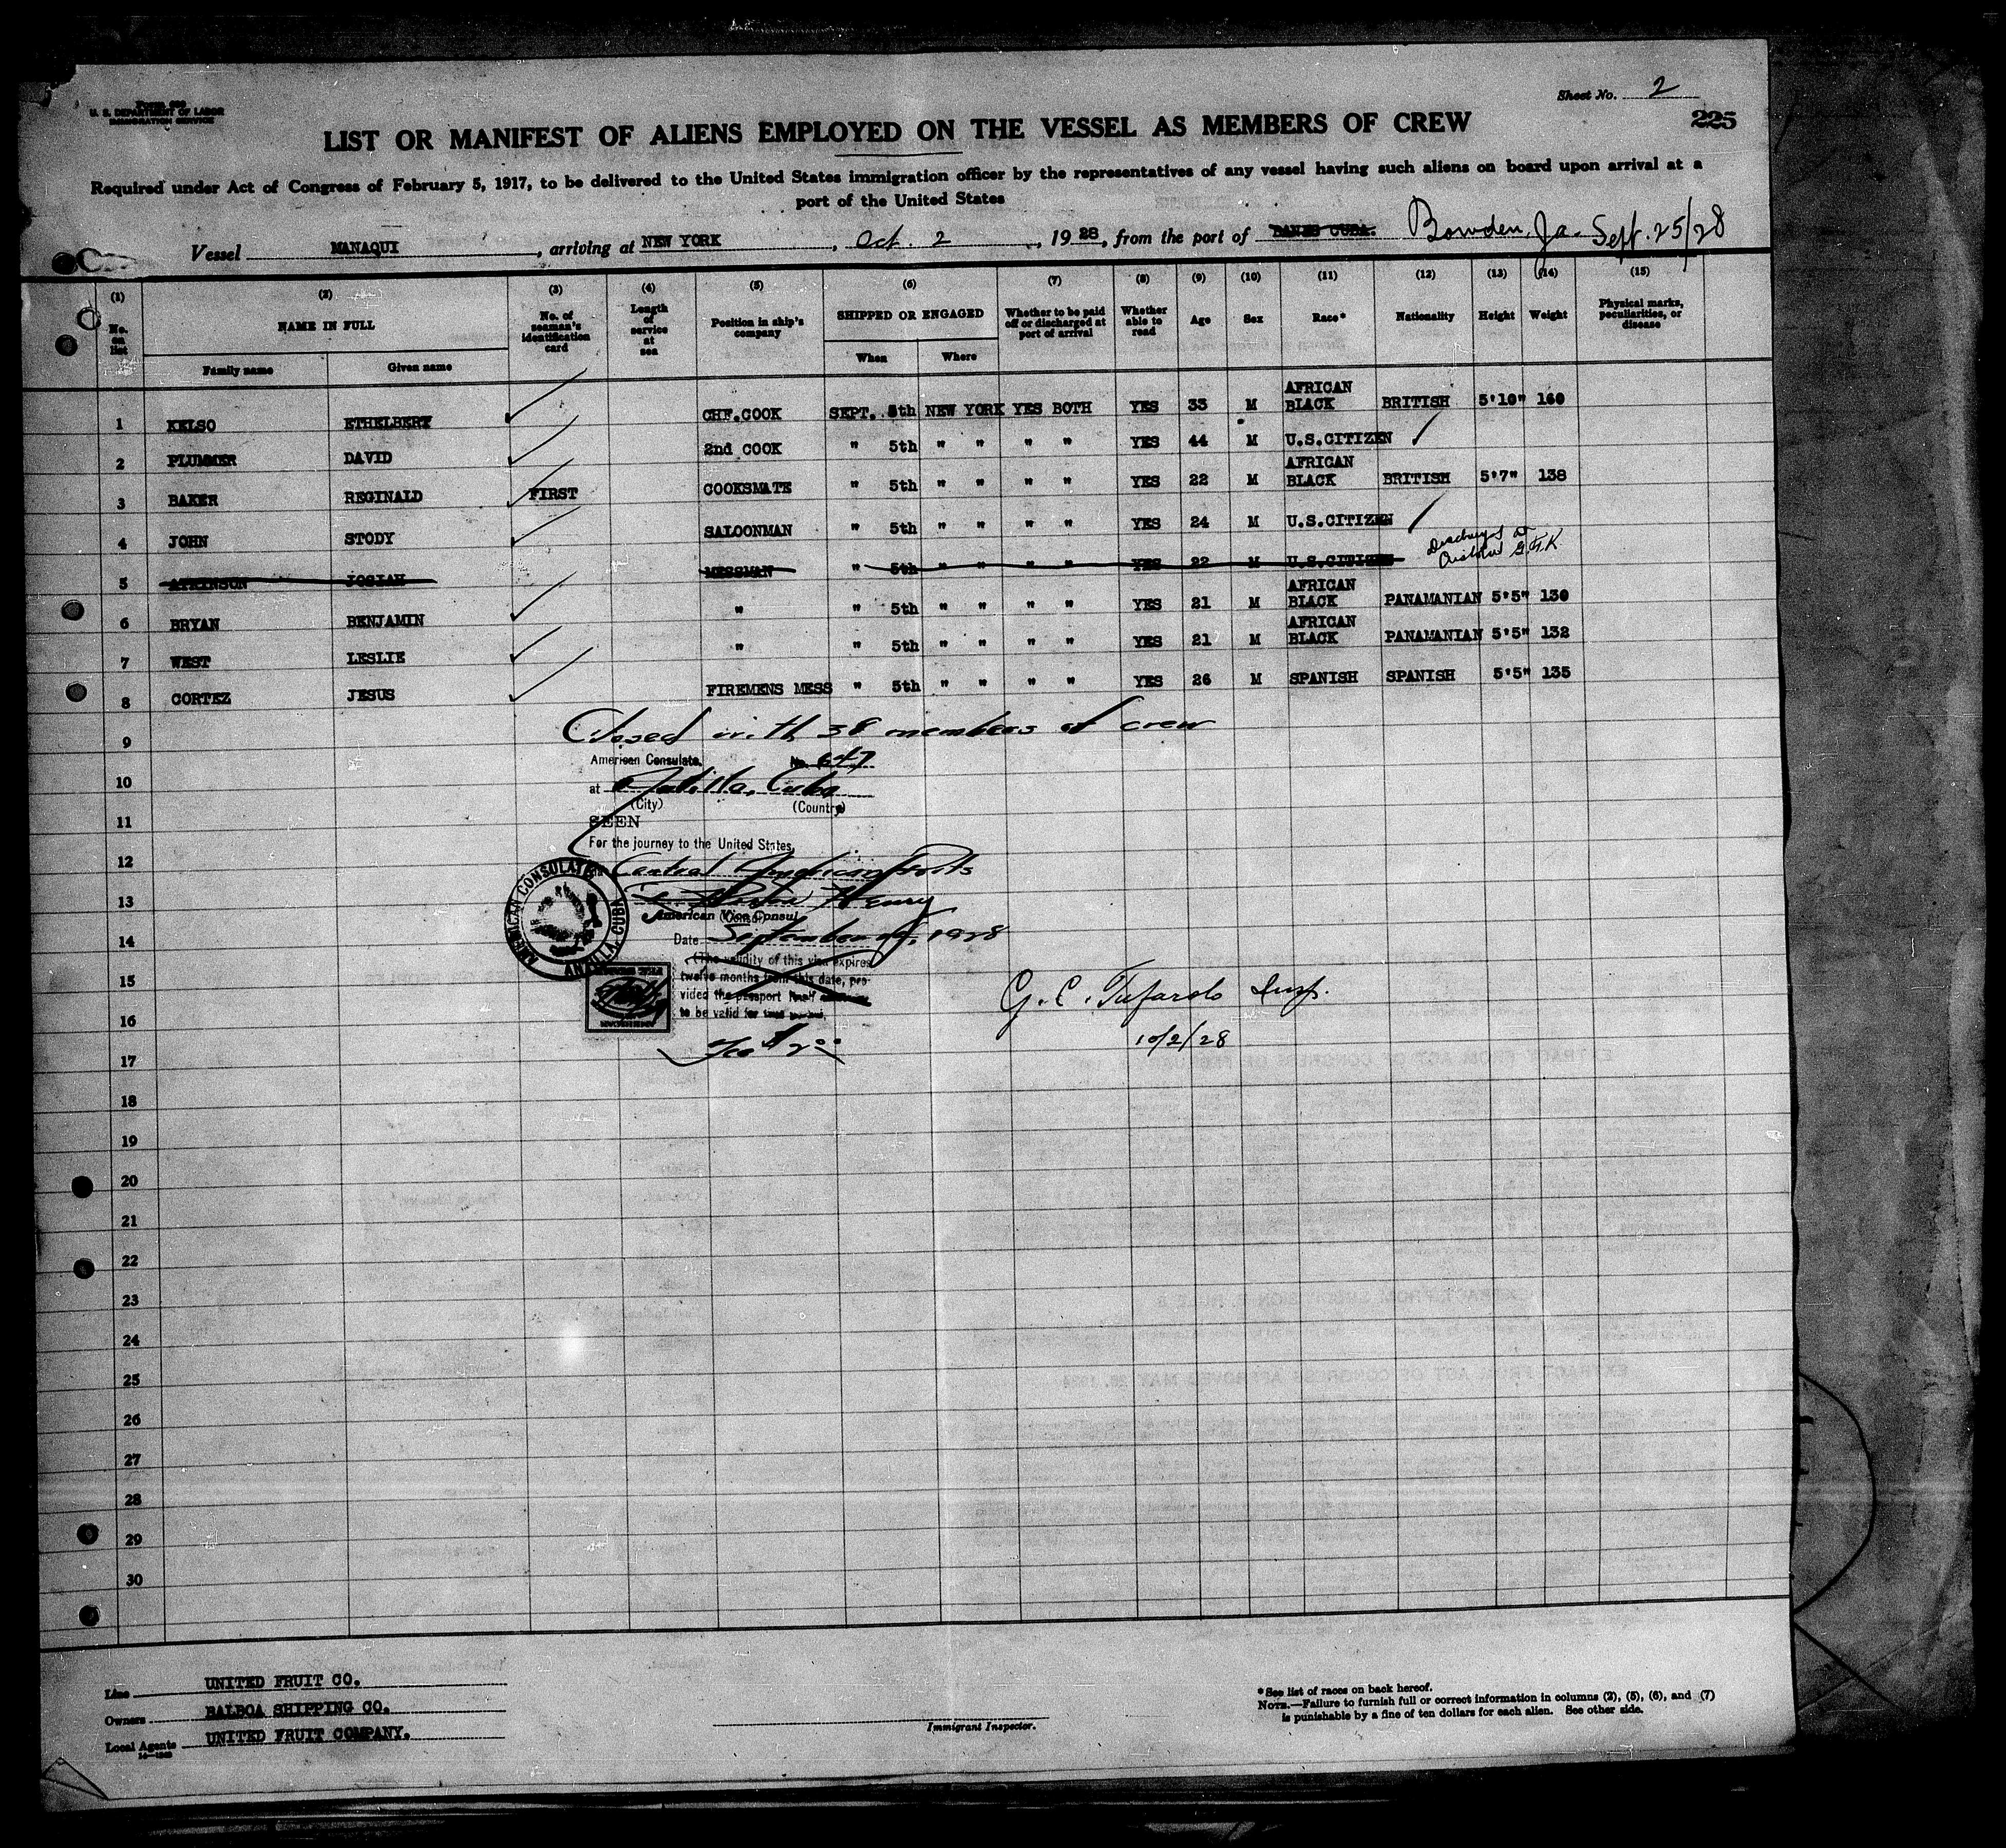 Form 680
U. S. DEPARTMENT OF LABOR
IMMIGRATION SERVICE
Sheet No. 2
225
LIST OR MANIFEST OF ALIENS EMPLOYED ON THE VESSEL AS MEMBERS OF CREW
Required under Act of Congress of February 5, 1917, to be delivered to the United States immigration officer by the representatives of any vessel having such aliens on board upon arrival at a
port of the United States
Vessel MANAQUI, arriving at NEW YORK, Oct. 2, 1928, from the port of BANES CUBA. Bowden, Ja. Sept. 25/28
(1) (2) (3) (4) (5) (6) (7) (8) (9) (10) (11) (12) (13) (14) (15)
No. on list NAME IN FULL No. of seaman's identification card Length of service at sea Position in ship's company SHIPPED OR ENGAGED Whether to be paid off or discharged at port of arrival Whether able to read Age Sex Race* Nationality Height Weight Physical marks, peculiarities, or disease
Family name Given name When Where
1 KELSO ETHELBERT CHF. COOK SEPT. 5th NEW YORK YES BOTH YES 33 M AFRICAN BLACK BRITISH 5'10" 160
2 PLUMMER DAVID 2nd COOK " 5th " " " " YES 44 M U.S.CITIZEN
3 BAKER REGINALD FIRST COOKSMATE " 5th " " " " YES 22 M AFRICAN BLACK BRITISH 5'7" 138
4 JOHN STODY SALOONMAN " 5th " " " " YES 24 M U.S.CITIZEN
5 ATKINSON JOSIAH MESSMAN " 5th " " " " YES 22 M U.S.CITIZEN Discharged at G.F.K
6 BRYAN BENJAMIN " " 5th " " " " YES 21 M AFRICAN BLACK PANAMANIAN 5'5" 130
7 WEST LESLIE " " 5th " " " " YES 21 M AFRICAN BLACK PANAMANIAN 5'5" 132
8 CORTEZ JESUS FIREMENS MESS " 5th " " " " YES 26 M SPANISH SPANISH 5'5" 135
Closed with 38 members of crew
9
American Consulate, No. 647
10 at Antilla, Cuba
(City) (Country)
11 SEEN
For the journey to the United States,
12 Central American Ports
13 Henry
American Vice Consul
14 Date September 1928
(The validity of this visa expires
15 twelve months from this date, pro-
vided the passport
16 to be valid for
AMERICAN CONSULATE
ANTILLA, CUBA
G. C. Tufarolo Insp.
10/2/28
17 Fee $2.00
18
19
20
21
22
23
24
25
26
27
28
29
30
Line UNITED FRUIT CO.
Owners BALBOA SHIPPING CO.
Local Agents UNITED FRUIT COMPANY.
Immigrant Inspector.
*See list of races on back hereof.
NOTE.—Failure to furnish full or correct information in columns (2), (5), (6), and (7)
is punishable by a fine of ten dollars for each alien. See other side.